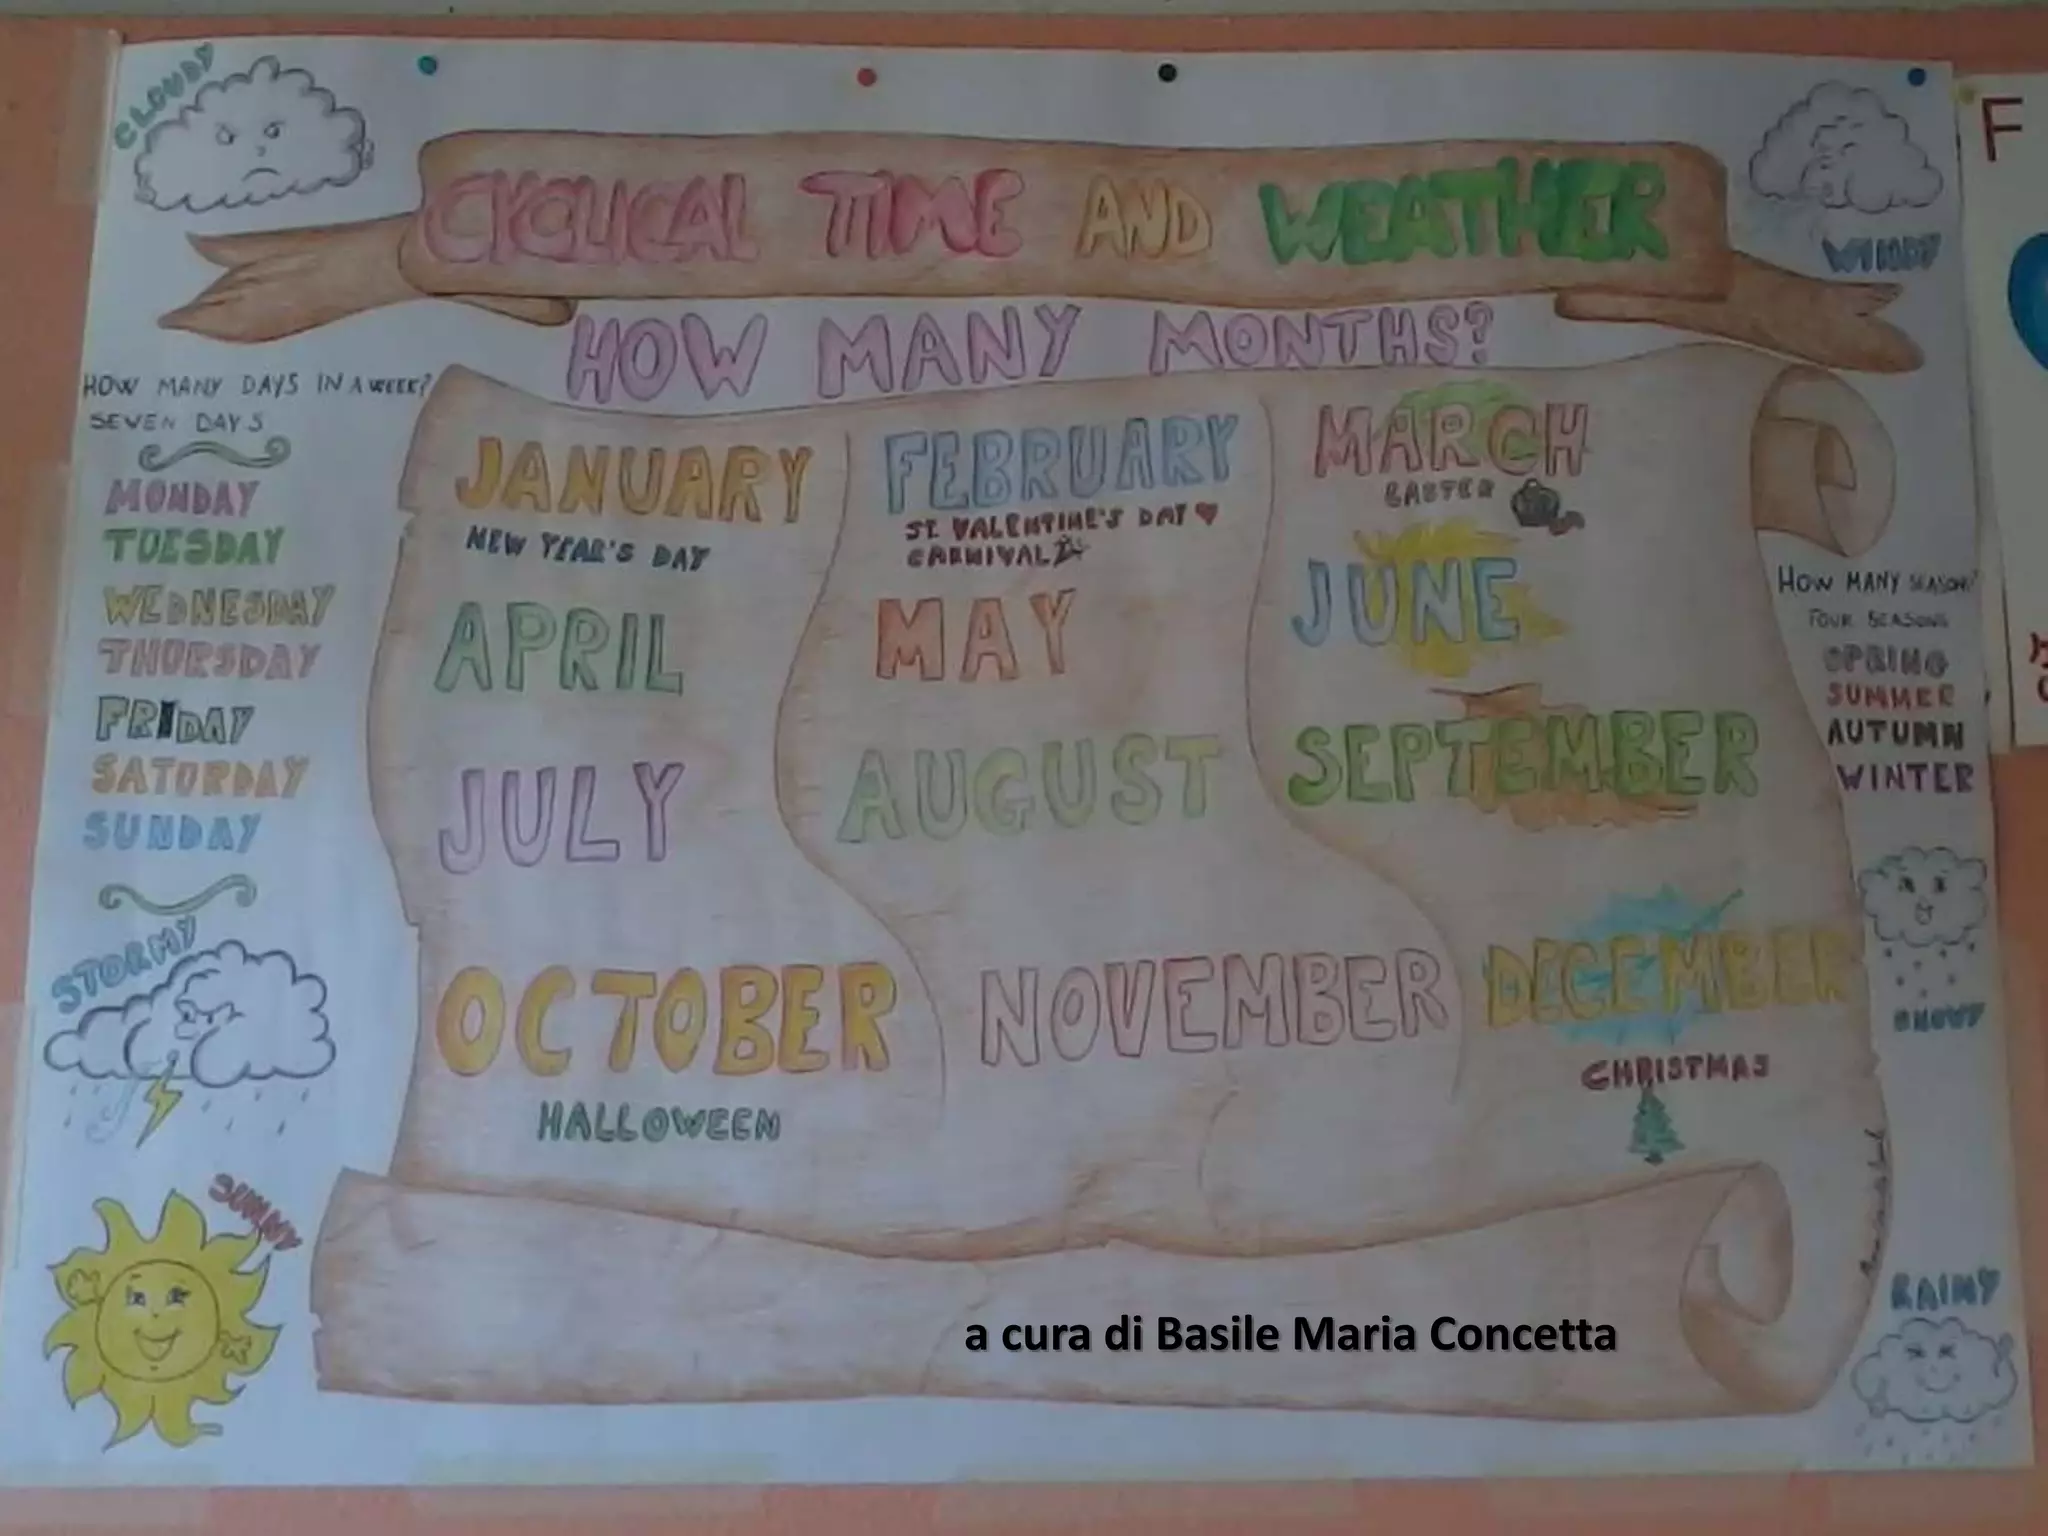 CLOUDY
CYCLICAL TIME AND WEATHER
WINDY
HOW MANY MONTHS?
HOW MANY DAYS IN A WEEK?
SEVEN DAYS
MONDAY
TUESDAY
WEDNESDAY
THURSDAY
FRIDAY
SATURDAY
SUNDAY
STORMY
SUNNY
JANUARY
NEW YEAR'S DAY
FEBRUARY
ST. VALENTINE'S DAY
CARNIVAL
MARCH
EASTER
APRIL
MAY
JUNE
JULY
AUGUST
SEPTEMBER
OCTOBER
HALLOWEEN
NOVEMBER
DECEMBER
CHRISTMAS
HOW MANY SEASON?
FOUR SEASONS
SPRING
SUMMER
AUTUMN
WINTER
SNOWY
RAINY
a cura di Basile Maria Concetta
F